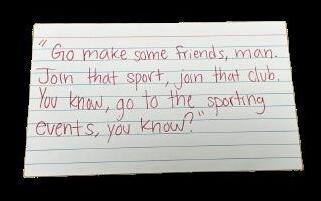 "Go make some friends, man.
Join that sport, join that club.
You know, go to the sporting
events, you know?"